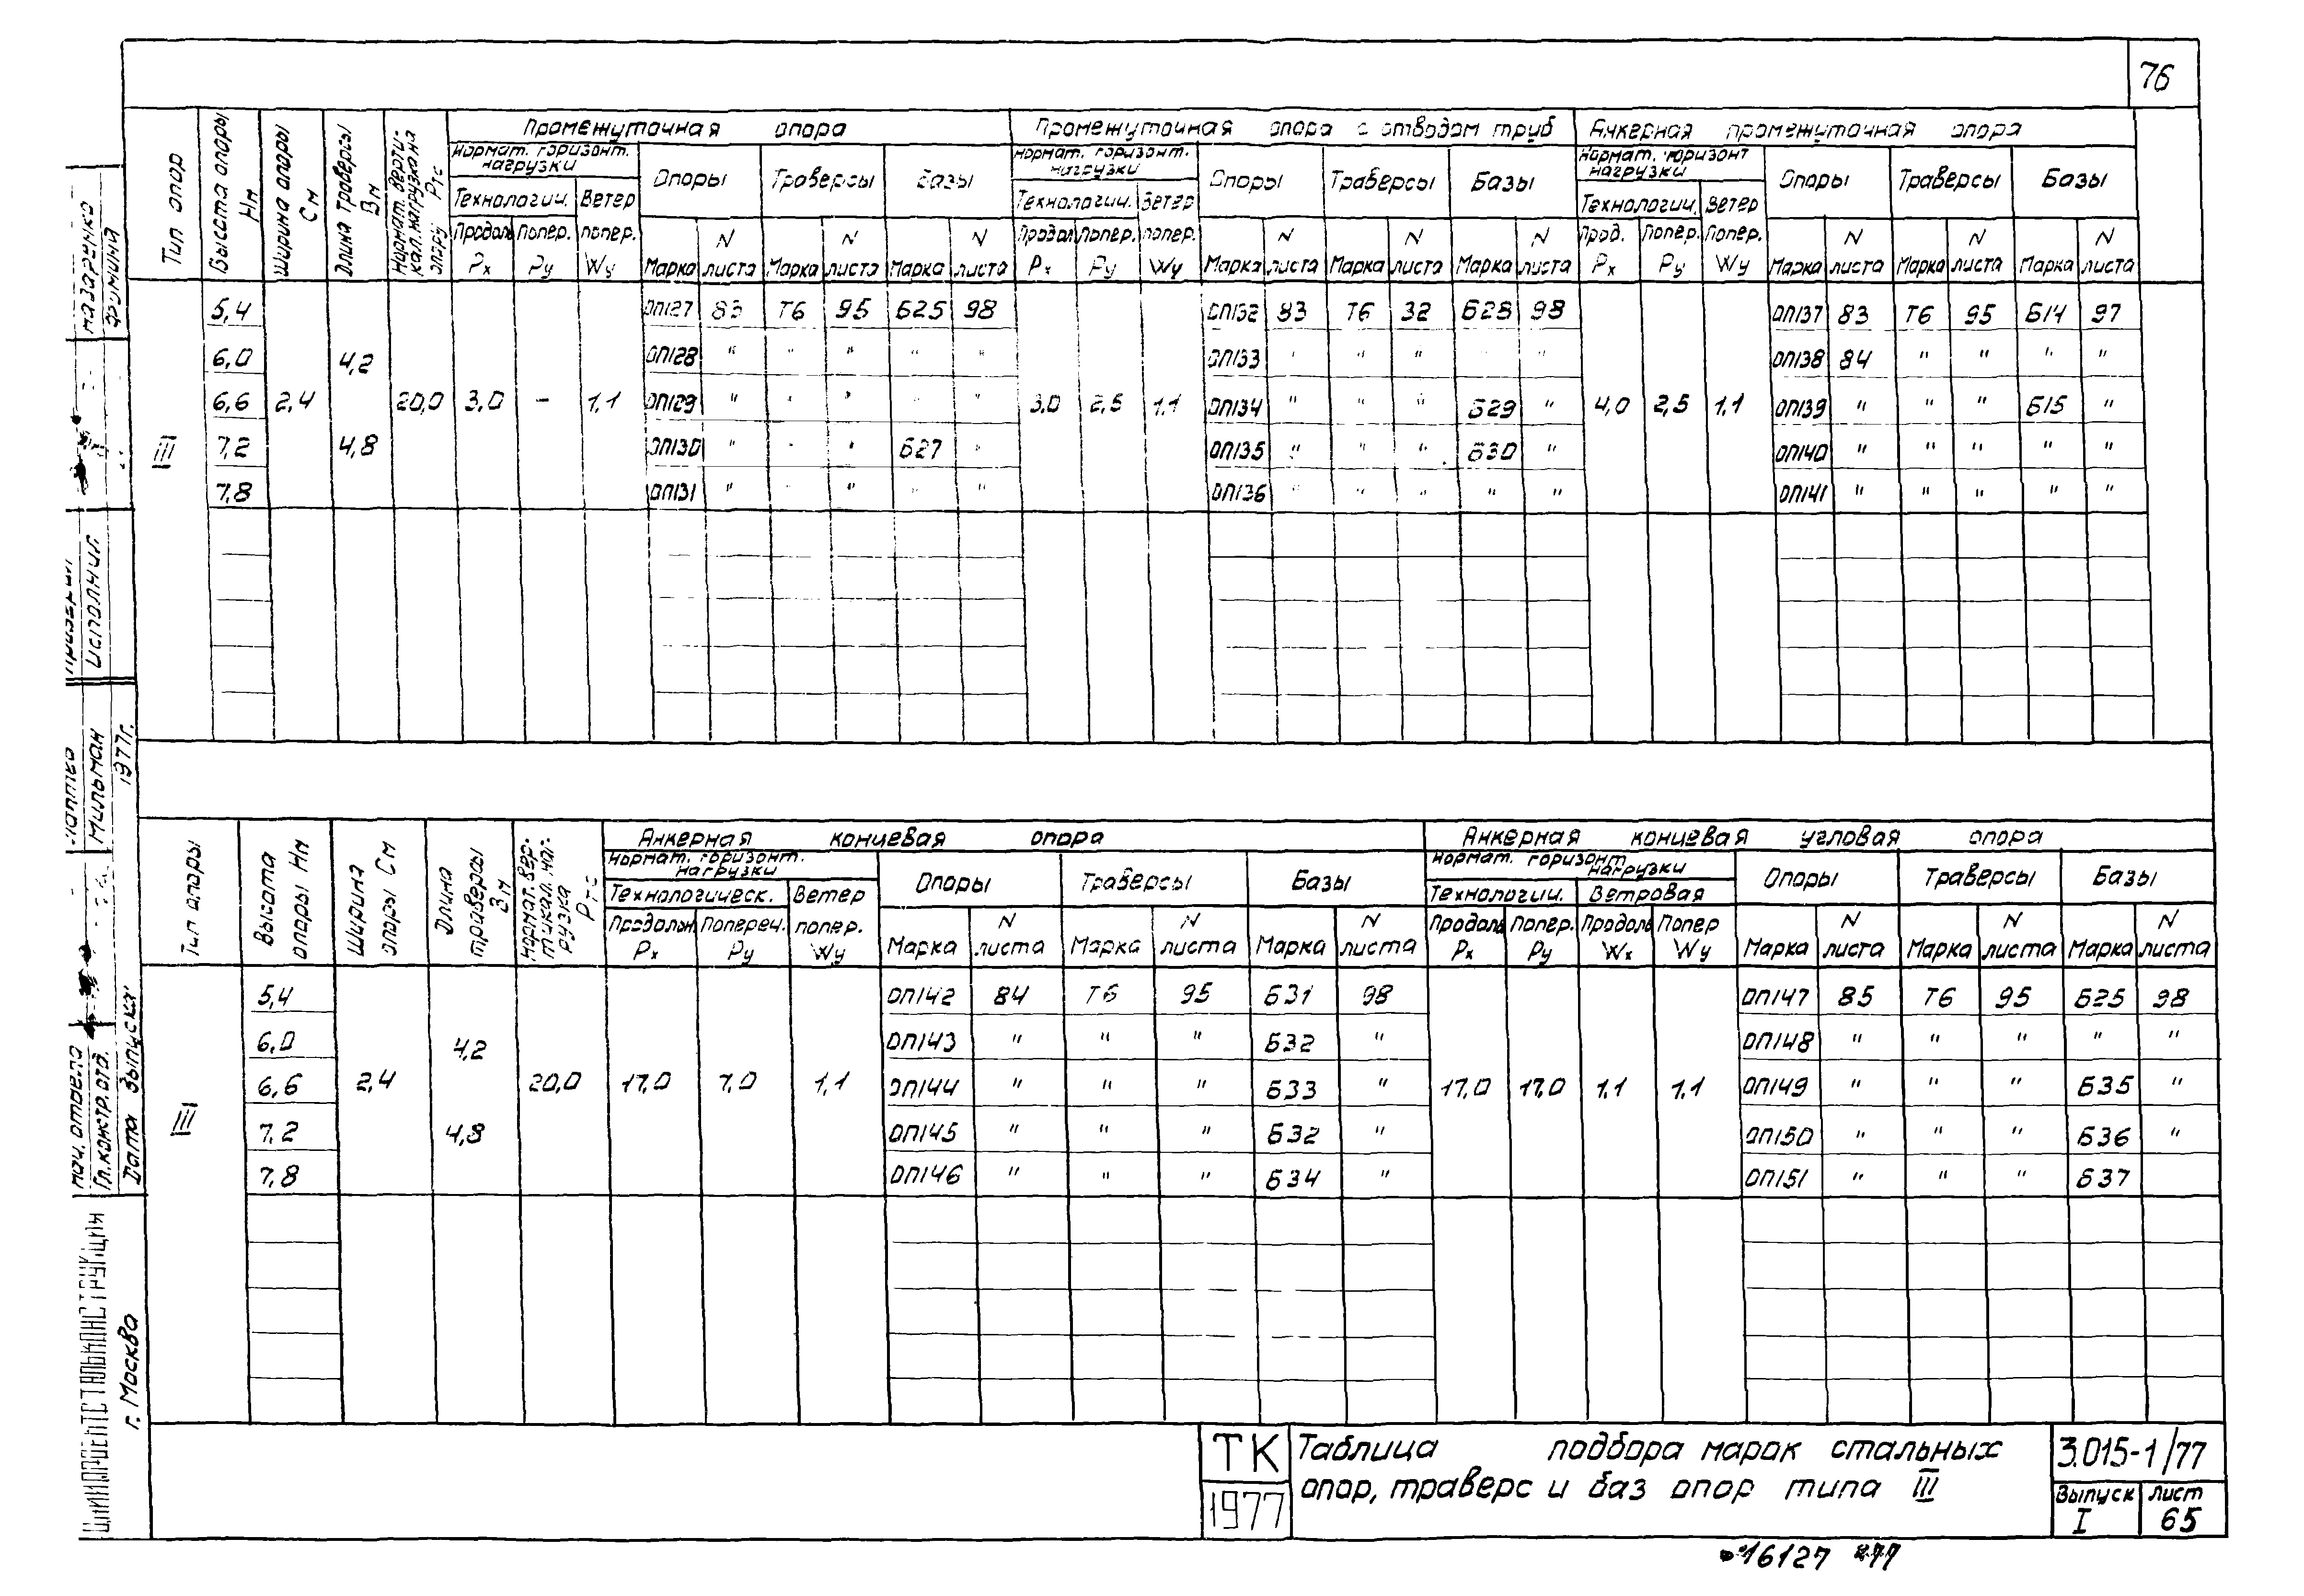 76
Тип опор | Высота опоры Нм | Ширина опоры См | Длина траверсы Вм | Нормат. верти-кал. нагрузка на опору Ртс | Промежуточная опора | Промежуточная опора с отводом труб | Анкерная промежуточная опора
Нормат. горизонт. нагрузки | Опоры | Траверсы | Базы | Нормат. горизонт. нагрузки | Опоры | Траверсы | Базы | Нормат. горизонт нагрузки | Опоры | Траверсы | Базы
Технологич. | Ветер | Технологич. | Ветер | Технологич. | Ветер
Продоль Рх | Попер. Ру | попер. Wу | Марка | N листа | Марка | N листа | Марка | N листа | Продол Рх | Попер. Ру | попер. Wу | Марка | N листа | Марка | N листа | Марка | N листа | Прод. Рх | Попер. Ру | Попер. Wу | Марка | N листа | Марка | N листа | Марка | N листа
5,4 | ОП127 | 83 | Т6 | 95 | Б25 | 98 | ОП132 | 83 | Т6 | 32 | Б28 | 98 | ОП137 | 83 | Т6 | 95 | Б14 | 97
6,0 | 4,2 | ОП128 | " | " | " | " | " | ОП133 | " | " | " | " | " | ОП138 | 84 | " | " | " | "
III | 6,6 | 2,4 | 20,0 | 3,0 | – | 1,1 | ОП129 | " | " | " | " | " | 3,0 | 2,5 | 1,1 | ОП134 | " | " | " | Б29 | " | 4,0 | 2,5 | 1,1 | ОП139 | " | " | " | Б15 | "
7,2 | 4,8 | ОП130 | " | " | " | Б27 | " | ОП135 | " | " | " | Б30 | " | ОП140 | " | " | " | " | "
7,8 | ОП131 | " | " | " | " | " | ОП136 | " | " | " | " | " | ОП141 | " | " | " | " | "
Тип опоры | Высота опоры Нм | Ширина опоры См | Длина траверсы Вм | Нормат. вер-тикал. наг-рузка Ртс | Анкерная концевая опора | Анкерная концевая угловая опора
Нормат. горизонт. нагрузки | Опоры | Траверсы | Базы | Нормат. горизонт нагрузки | Опоры | Траверсы | Базы
Технологическ. | Ветер | Технологич. | Ветровая
Продольн Рх | Попереч. Ру | попер. Wу | Марка | N листа | Марка | N листа | Марка | N листа | Продоль Рх | Попер. Ру | Продоль Wх | Попер Wу | Марка | N листа | Марка | N листа | Марка | N листа
5,4 | ОП142 | 84 | Т6 | 95 | Б31 | 98 | ОП147 | 85 | Т6 | 95 | Б25 | 98
6,0 | 4,2 | ОП143 | " | " | " | Б32 | " | ОП148 | " | " | " | " | "
III | 6,6 | 2,4 | 20,0 | 17,0 | 7,0 | 1,1 | ОП144 | " | " | " | Б33 | " | 17,0 | 17,0 | 1,1 | 1,1 | ОП149 | " | " | " | Б35 | "
7,2 | 4,8 | ОП145 | " | " | " | Б32 | " | ОП150 | " | " | " | Б36 | "
7,8 | ОП146 | " | " | " | Б34 | " | ОП151 | " | " | " | Б37
ТК
1977
Таблица подбора марок стальных
опор, траверс и баз опор типа III
3.015-1/77
Выпуск I
Лист 65
16127
Назаренко
Исполнил
Мильман
1977г.
Нач. отдела
Гл. констр. отд.
Дата выпуска
ЦНИИПРОЕКТСТАЛЬКОНСТРУКЦИЯ
г. Москва